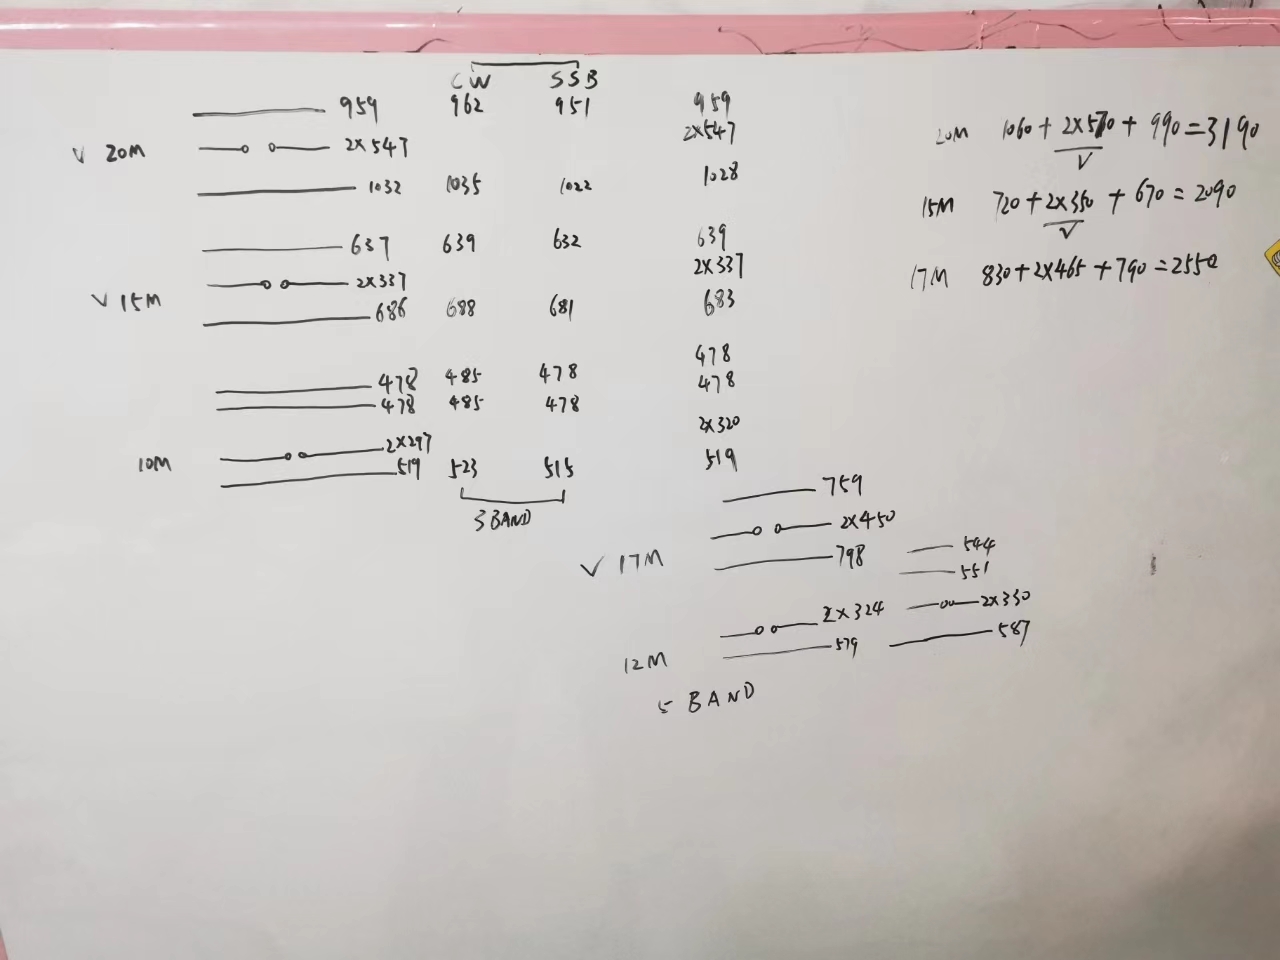 CW SSB
959 962 951 959
V 20M 2×547 2×547
1032 1035 1022 1028
637 639 632 639
V 15M 2×337 2×337
686 688 681 683
478 485 478 478
478 485 478 478
10M 2×297 2×320
519 523 515 519
3 BAND
20M 1060 + 2×570 + 990 = 3190
V
15M 720 + 2×350 + 670 = 2090
V
17M 830 + 2×465 + 790 = 2550
759
2×450
V 17M 798
544
551
12M 2×324 2×330
579 587
5 BAND